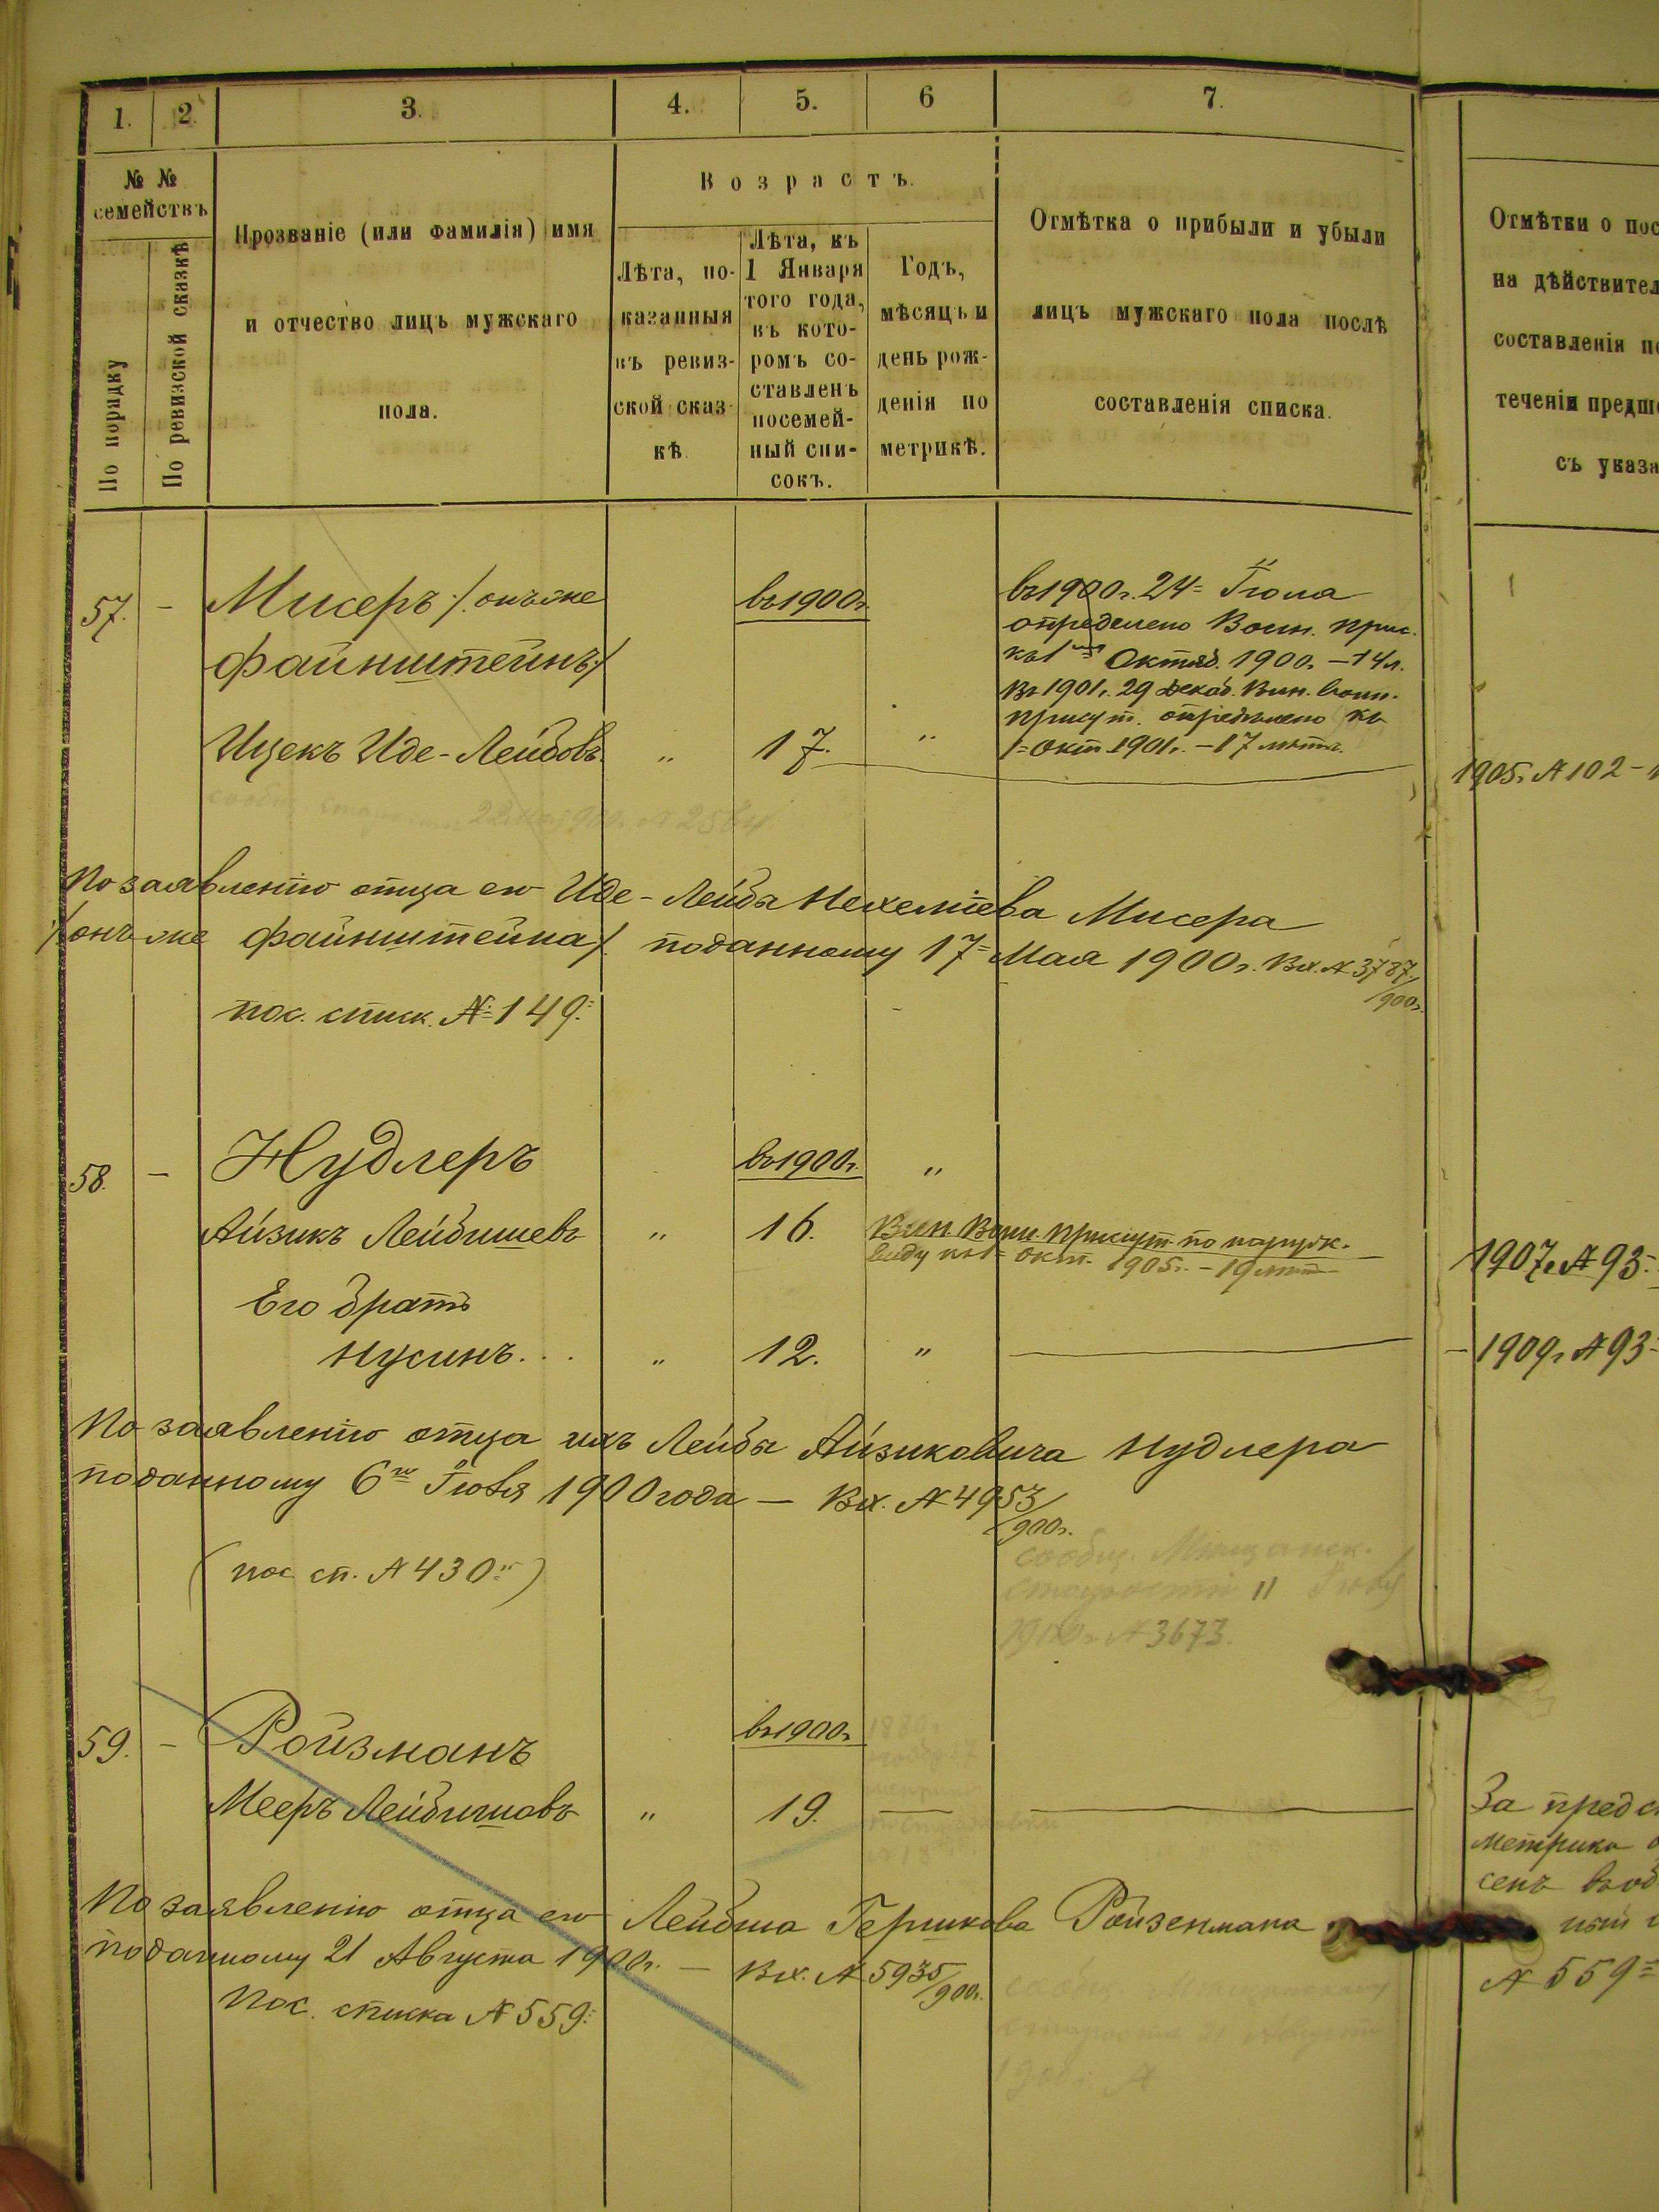 1. 2. 3. 4. 5. 6 7.
№ № семействъ
По порядку
По ревизской сказкѣ
Прозваніе (или фамилія) имя
и отчество лицъ мужскаго
пола.
Возрастъ.
Лѣта, по-
казанныя
въ ревиз-
ской сказ-
кѣ
Лѣта, къ
1 Января
того года,
въ кото-
ромъ со-
ставленъ
посемей-
ный спи-
сокъ.
Годъ,
мѣсяцъ и
день рож-
денія по
метрикѣ.
Отмѣтка о прибыли и убыли
лицъ мужскаго пола послѣ
составленія списка.
Отмѣтки о пос
на дѣйствител
составленія п
теченіи предш
съ указа
57. – Мисеръ /. онъ же въ 1900г.
Файнштейнъ /
Ицекъ Иде-Лейбовъ " 17. "
въ 1900г. 24 Іюля
определено Воин. прис.
къ 1 Октяб. 1900г. – 14 л.
Въ 1901г. 29 Декаб. Вин. Воин.
присут. опредѣлено къ
1 = Окт. 1901г. – 17 лѣтъ.
1905г. № 102 –
22 мая 900г. № 2584
По заявленію отца его Иде-Лейба Нехеміева Мисера
/. онъ же Файнштейна /. поданному 17 = Мая 1900г. Вх. № 3787/900г.
пос. списк. № 149.
58. – Нудлеръ въ 1900г. "
Айзикъ Лейбишевъ " 16.
Вин. Воин. Присут. по наружн.
виду къ 1 = окт. 1905г. – 19 лѣт
1907г. № 93.
Его братъ
Нусинъ . . . " 12. "
– 1909г. № 93 –
По заявленію отца ихъ Лейбы Айзиковича Нудлера
поданному 6го Іюля 1900 года – Вх. № 4953/900г.
(пос. сп. № 430)
сообщ. Мѣщанск.
старостѣ 11 Іюля
1900г. № 3673.
59. – Ройзманъ въ 1900г.
Мееръ Лейбишовъ " 19. —
1880г.
За предс
метрики
сенъ въ об
№ 559 =
По заявленію отца его Лейбиша Гершкова Ройзенмана
поданному 21 Августа 1900г. – Вх. № 5935/900г.
Пос. списка № 559.
сообщ. Мѣщанскому
старостѣ 21 августа
1900г. №